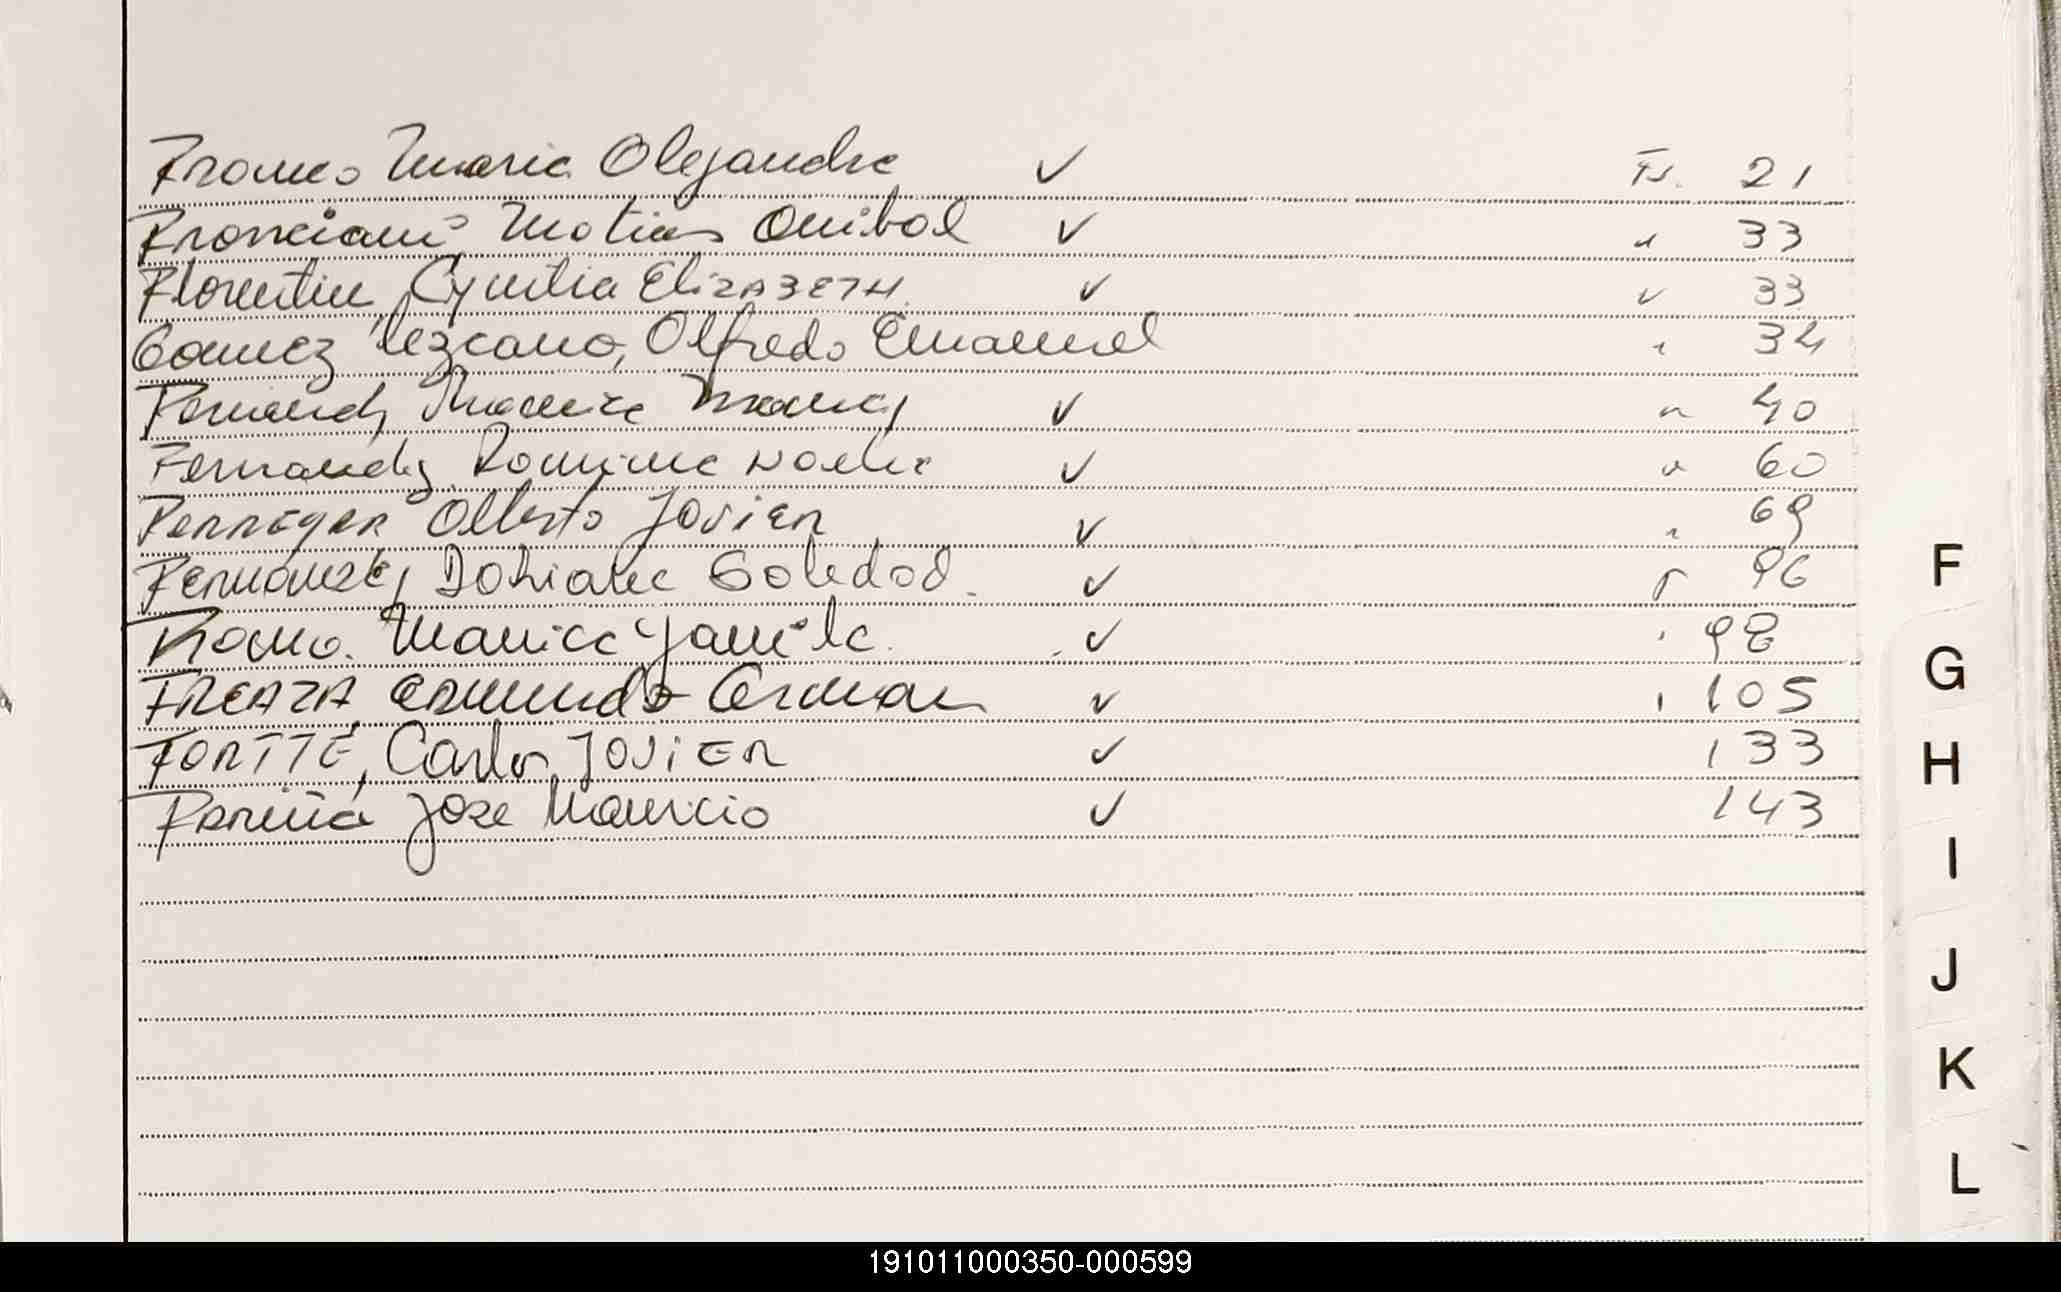 Franco Maria Alejandra ✓ Fs. 21
Franciani Matias Anibal ✓ " 33
Florentin, Cyntia Elizabeth ✓ " 33
Gomez Lezcano, Alfredo Emanuel " 34
Fernandz Nancy ✓ " 40
Fernandz Romina Noelia ✓ " 60
Ferreyra Alberto Javier ✓ " 69
Fernandez, Daiana Soledad. ✓ " 96
Marica Yamila. ✓ " 98
FREAZA Edmundo German ✓ " 105
FORTTE, Carlos Javier ✓ 133
Fariña Jose Mauricio ✓ 143
F
G
H
I
J
K
L
191011000350-000599